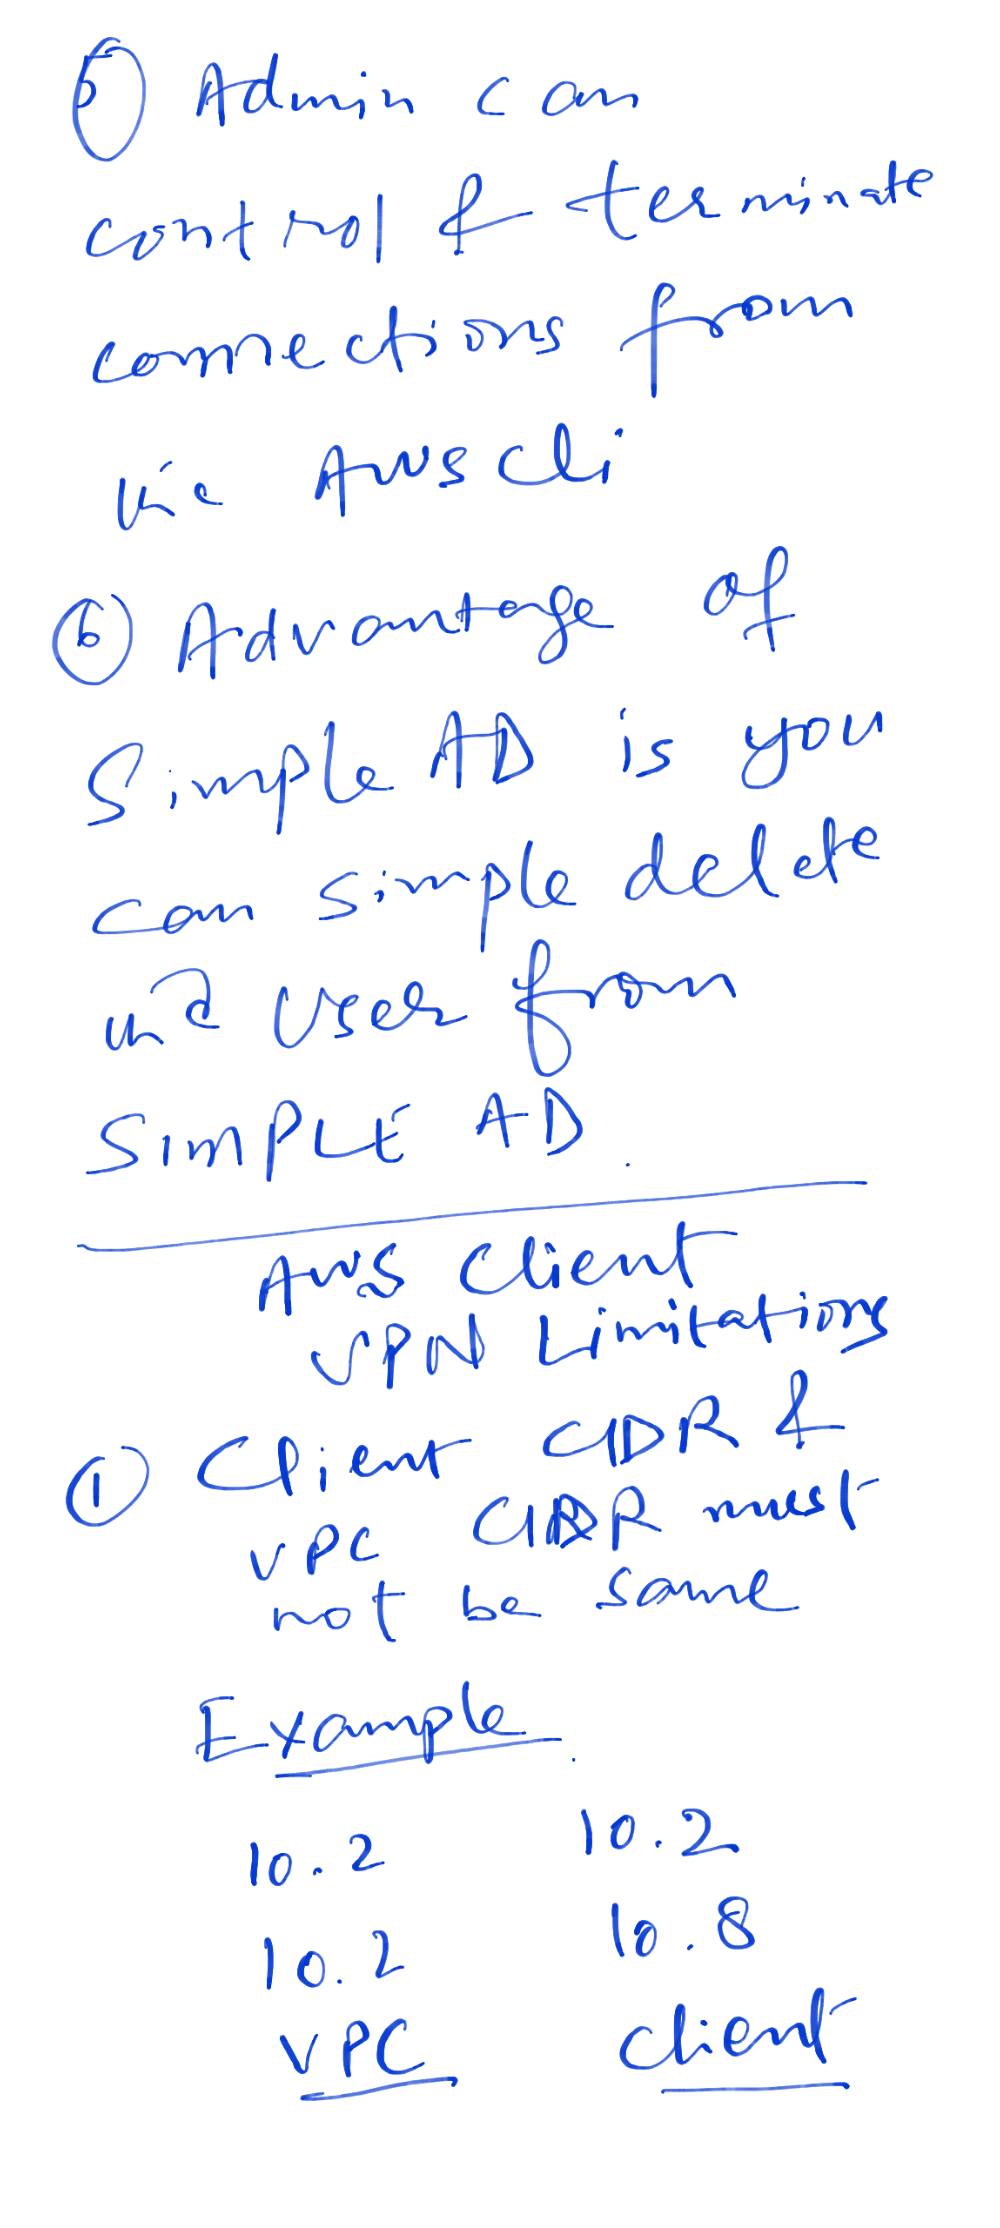 5 Admin can
control & terminate
connections from
via AWS cli
6 Advantage of
Simple AD is you
can simple delete
User from
SIMPLE AD.
AWS Client
VPN Limitations
1 Client CIDR &
VPC CIDR must
not be same
Example
10.2 10.2
10.2 10.8
VPC client